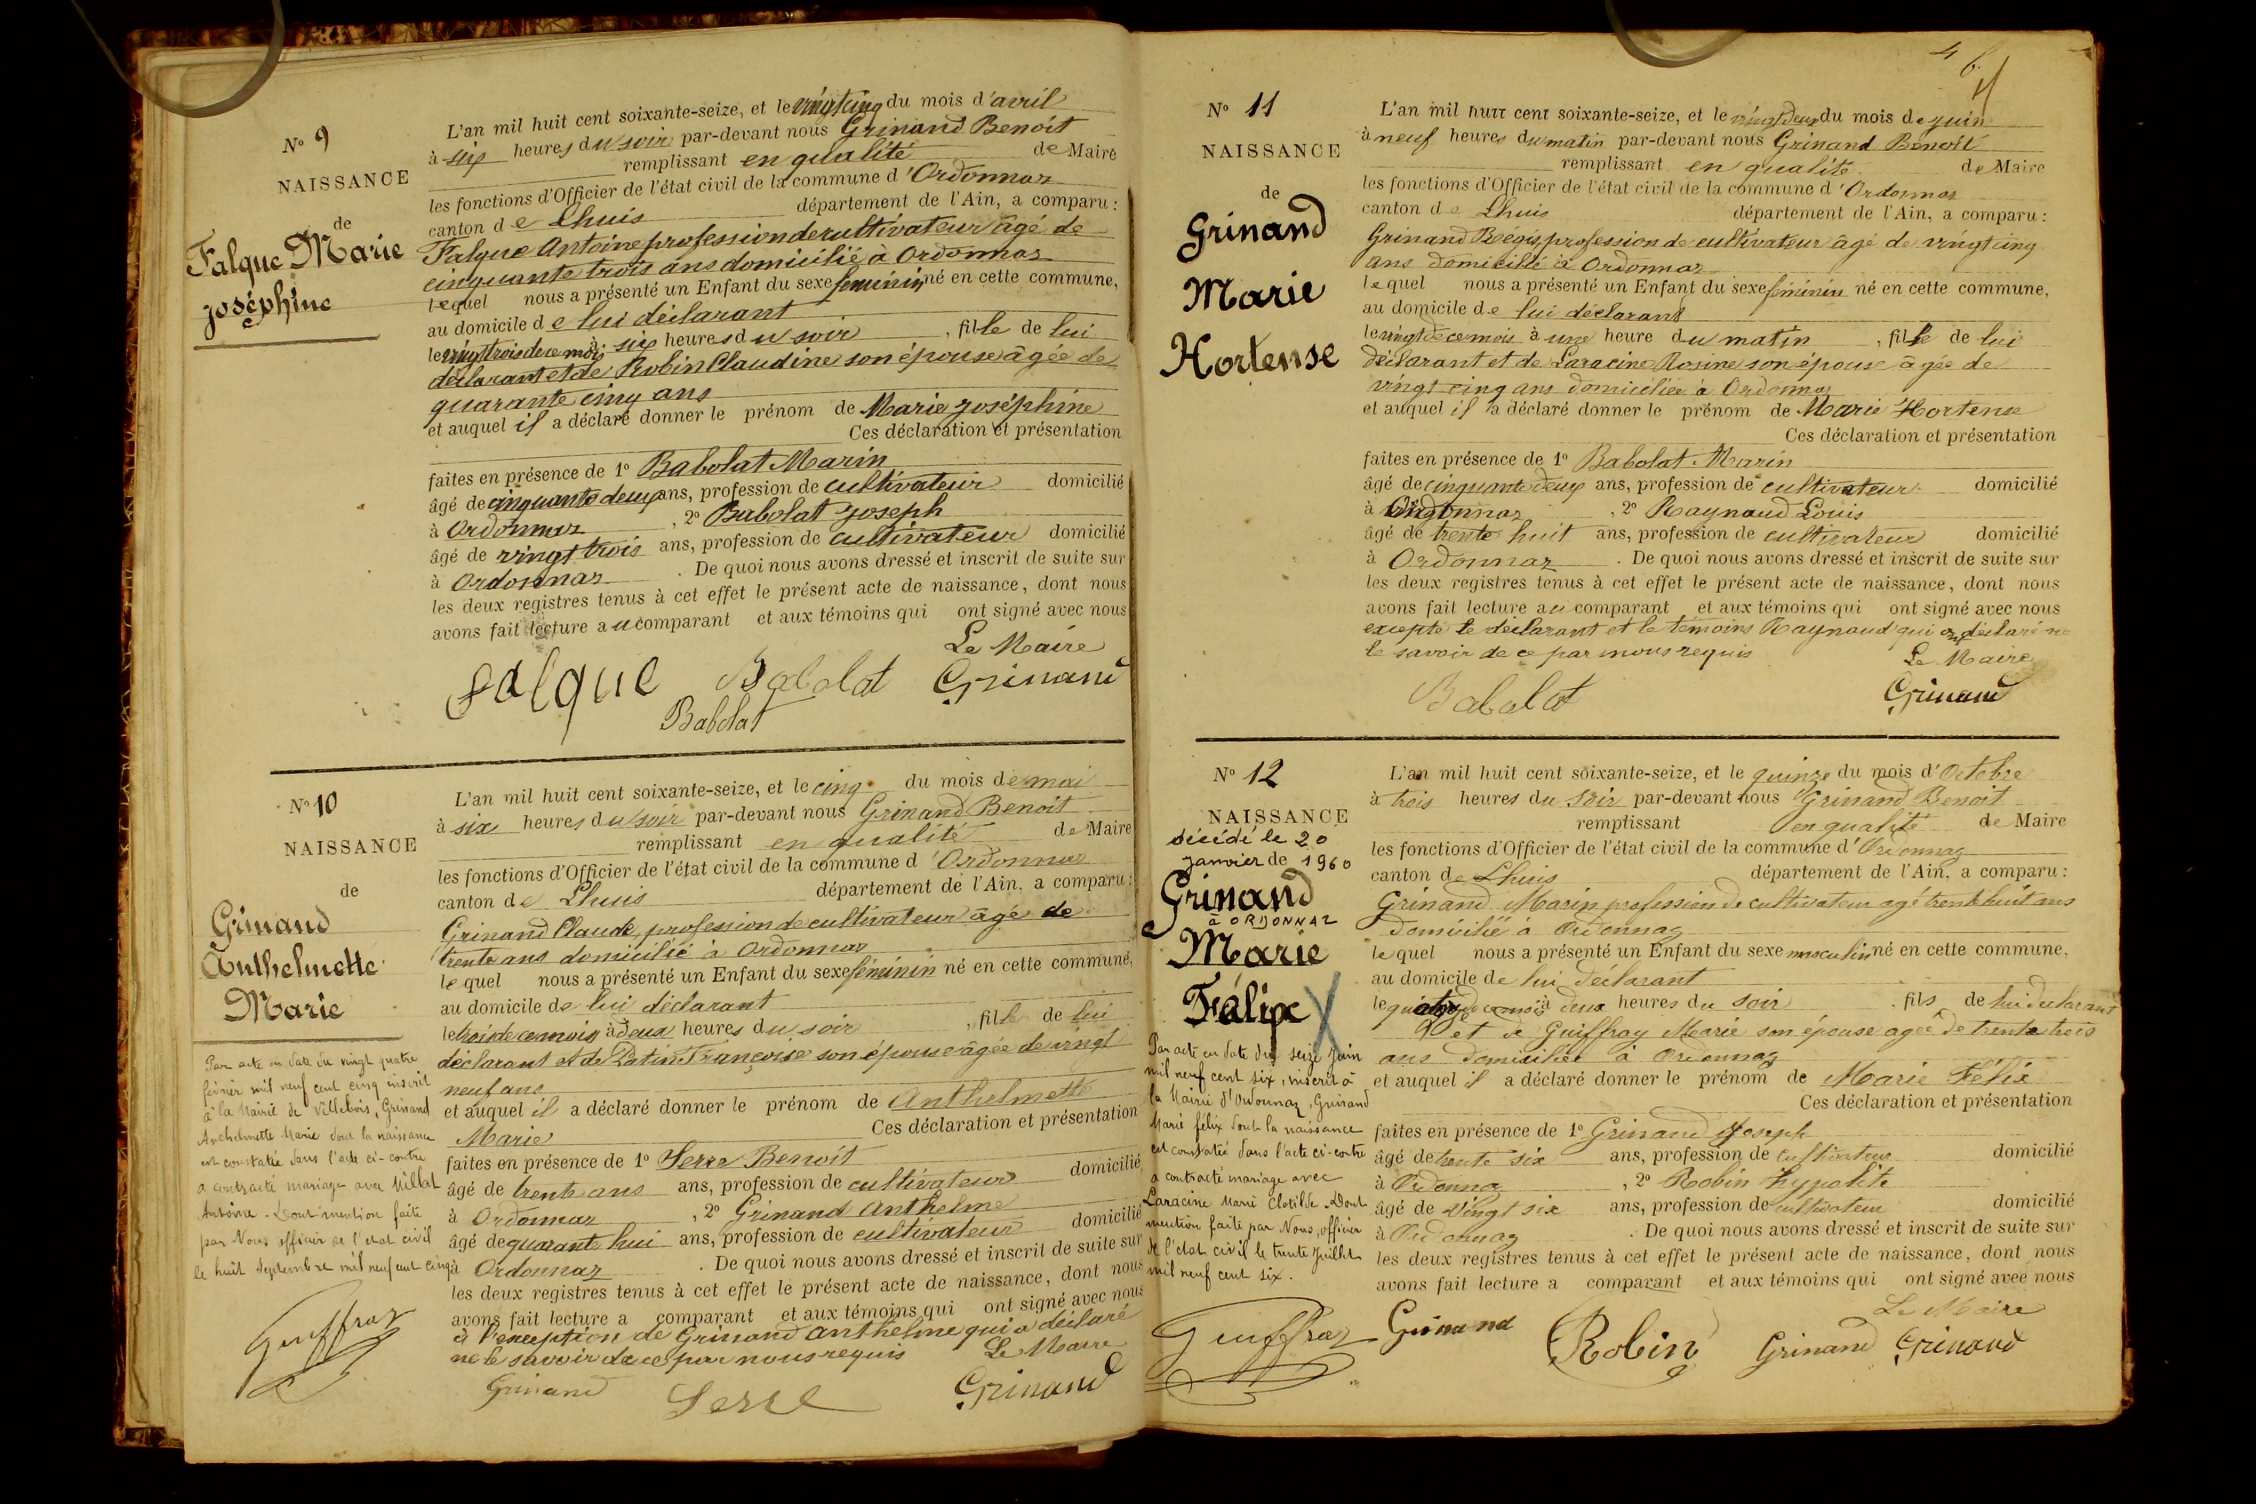 N° 9
NAISSANCE
de
Falque Marie
joséphine
L'an mil huit cent soixante-seize, et le vingt cinq du mois d'avril
à six heures du soir par-devant nous Grinand Benoit
remplissant en qualité de Maire
les fonctions d'Officier de l'état civil de la commune d'Ordonnaz
canton de Lhuis département de l'Ain, a comparu :
Falque Antoine profession de cultivateur âgé de
cinquante trois ans domicilié à Ordonnaz
lequel nous a présenté un Enfant du sexe féminin né en cette commune,
au domicile de lui déclarant
le vingt trois de ce mois à six heures du soir, fille de lui
déclarant et de Robin Claudine son épouse âgée de
quarante cinq ans
et auquel il a déclaré donner le prénom de Marie joséphine
Ces déclaration et présentation
faites en présence de 1° Babolat Marin
âgé de cinquante deux ans, profession de cultivateur domicilié
à Ordonnaz, 2° Babolat joseph
âgé de vingt trois ans, profession de cultivateur domicilié
à Ordonnaz. De quoi nous avons dressé et inscrit de suite sur
les deux registres tenus à cet effet le présent acte de naissance, dont nous
avons fait lecture au comparant et aux témoins qui ont signé avec nous
Le Maire
falque Babolat Grinand
Babolat
N° 10
NAISSANCE
de
Grinand
Anthelmette
Marie
Par acte en date du vingt quatre
février mil neuf cent cinq inscrit
à la Mairie de Villebois, Grinand
Anthelmette Marie dont la naissance
est constatée dans l'acte ci-contre
a contracté mariage avec Millat
Antoine. Dont mention faite
par Nous officier de l'état civil
le huit Septembre mil neuf cent cinq
Guiffraz
L'an mil huit cent soixante-seize, et le cinq du mois de mai
à six heures du soir par-devant nous Grinand Benoit
remplissant en qualité de Maire
les fonctions d'Officier de l'état civil de la commune d'Ordonnaz
canton de Lhuis département de l'Ain, a comparu :
Grinand Claude, profession de cultivateur âgé de
trente ans domicilié à Ordonnaz
lequel nous a présenté un Enfant du sexe féminin né en cette commune,
au domicile de lui déclarant
le trois de ce mois à deux heures du soir, fille de lui
déclarant et de Françoise son épouse âgée de vingt
neuf ans
et auquel il a déclaré donner le prénom de Anthelmette
Marie Ces déclaration et présentation
faites en présence de 1° Serre Benoit
âgé de trente ans ans, profession de cultivateur domicilié
à Ordonnaz, 2° Grinand Anthelme
âgé de quarante hui ans, profession de cultivateur domicilié
à Ordonnaz. De quoi nous avons dressé et inscrit de suite sur
les deux registres tenus à cet effet le présent acte de naissance, dont nous
avons fait lecture a comparant et aux témoins qui ont signé avec nous
à l'exception de Grinand Anthelme qui a déclaré
ne le savoir de ce par nous requis Le Maire
Grinand Serre Grinand
4
6
N° 11
NAISSANCE
de
Grinand
Marie
Hortense
L'an mil huit cent soixante-seize, et le vingt deux du mois de juin
à neuf heures du matin par-devant nous Grinand Benoit
remplissant en qualité de Maire
les fonctions d'Officier de l'état civil de la commune d'Ordonnaz
canton de Lhuis département de l'Ain, a comparu :
Grinand Régis, profession de cultivateur âgé de vingt cinq
ans domicilié à Ordonnaz
lequel nous a présenté un Enfant du sexe féminin né en cette commune,
au domicile de lui déclarant
le vingt de ce mois à une heure du matin, fille de lui
déclarant et de Laracine Rosine son épouse âgée de
vingt cinq ans domiciliée à Ordonnaz
et auquel il a déclaré donner le prénom de Marie Hortense
Ces déclaration et présentation
faites en présence de 1° Babolat Marin
âgé de cinquante deux ans, profession de cultivateur domicilié
à Ordonnaz, 2° Raynaud Louis
âgé de trente huit ans, profession de cultivateur domicilié
à Ordonnaz. De quoi nous avons dressé et inscrit de suite sur
les deux registres tenus à cet effet le présent acte de naissance, dont nous
avons fait lecture au comparant et aux témoins qui ont signé avec nous
excepté le déclarant et le témoins Raynaud qui ont déclaré ne
le savoir de ce par nous requis
Le Maire
Babolat Grinand
N° 12
NAISSANCE
décédé le 20
janvier de 1960
Grinand
à ORDONNAZ
Marie
Félix
Par acte en date du seize Juin
mil neuf cent six, inscrit à
la Mairie d'Ordonnaz, Grinand
Marie félix dont la naissance
est constatée dans l'acte ci-contre
a contracté mariage avec
Laracine Marie Clotilde. Dont
mention faite par Nous, officier
de l'état civil le trente Juillet
mil neuf cent six.
Guiffraz
L'an mil huit cent soixante-seize, et le quinze du mois d'Octobre
à trois heures du soir par-devant nous Grinand Benoit
remplissant en qualité de Maire
les fonctions d'Officier de l'état civil de la commune d'Ordonnaz
canton de Lhuis département de l'Ain, a comparu :
Grinand Marin profession de cultivateur agé trente huit ans
domicilié à Ordonnaz
lequel nous a présenté un Enfant du sexe masculin né en cette commune,
au domicile de lui déclarant
le quatorze de ce mois à deux heures du soir, fils de lui déclarant
et de Guiffray Marie son épouse agée de trente trois
ans domiciliée à Ordonnaz
et auquel il a déclaré donner le prénom de Marie Félix
Ces déclaration et présentation
faites en présence de 1° Grinand Joseph
âgé de trente six ans, profession de cultivateur domicilié
à Ordonnaz, 2° Robin hypolite
âgé de vingt six ans, profession de cultivateur domicilié
à Ordonnaz. De quoi nous avons dressé et inscrit de suite sur
les deux registres tenus à cet effet le présent acte de naissance, dont nous
avons fait lecture a comparant et aux témoins qui ont signé avec nous
Le Maire
Grinand Robin Grinand Grinand